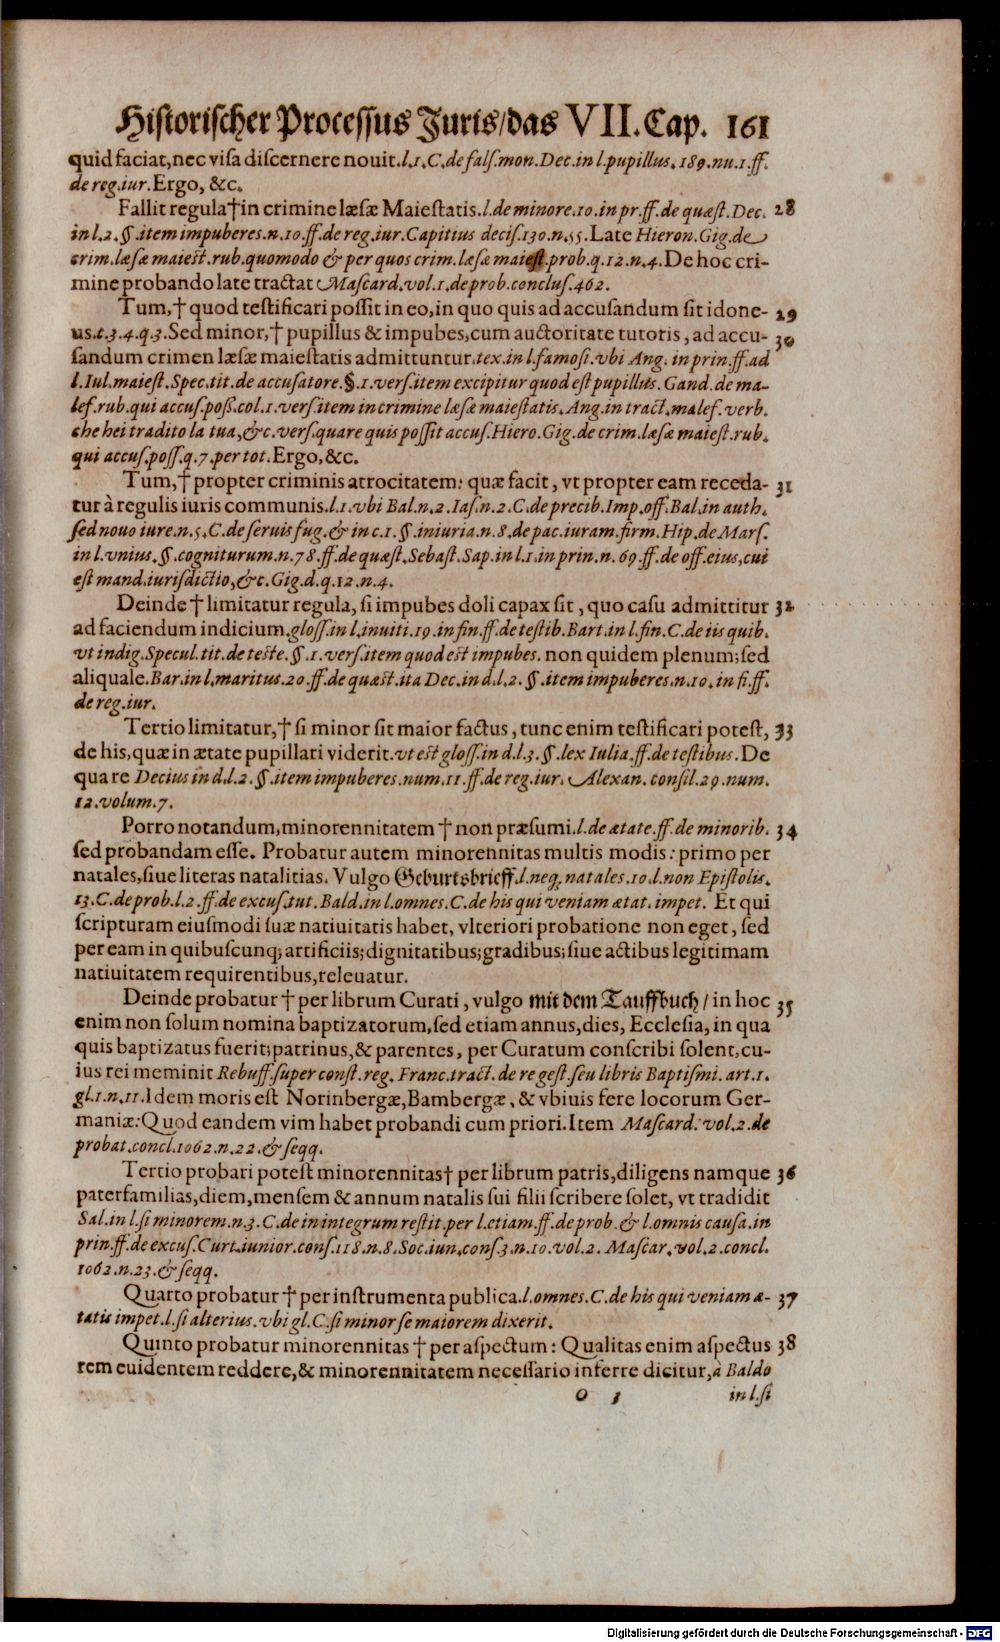 Historischer Processus Juris/das VII. Cap. 161
quid faciat, nec visa discernere nouit. l.1. C. de fals. mon. Dec. in l. pupillus. 189. nu. 1. ff.
de reg. iur. Ergo, &c.
Fallit regula † in crimine læsæ Maiestatis. l. de minore. 10. in pr. ff. de quæst. Dec. 28
in l. 2. §. item impuberes. n. 10. ff. de reg. iur. Capitius decis. 130. n. 55. Late Hieron. Gig. de
crim. læsæ maiest. rub. quomodo & per quos crim. læsæ maiest. prob. q. 12. n. 4. De hoc cri-
mine probando late tractat Mascard. vol. 1. de prob. conclus. 462.
Tum, † quod testificari possit in eo, in quo quis ad accusandum sit idone- 29
us. t. 3. 4. q. 3. Sed minor, † pupillus & impubes, cum auctoritate tutoris, ad accu- 30
sandum crimen læsæ maiestatis admittuntur. tex. in l. famosi. vbi Ang. in prin. ff. ad
l. Iul. maiest. Spec. tit. de accusatore. §. 1. vers. item excipitur quod est pupillus. Gand. de ma-
lef. rub. qui accus. poß. col. 1. vers. item in crimine læsæ maiestatis. Ang. in tract. malef. verb.
che hei tradito la tua, &c. vers. quare quis possit accus. Hiero. Gig. de crim. læsæ maiest. rub.
qui accus. poss. q. 7. per tot. Ergo, &c.
Tum, † propter criminis atrocitatem: quæ facit, vt propter eam receda- 31
tur à regulis iuris communis. l. 1. vbi Bal. n. 2. Ias. n. 2. C. de precib. Imp. off. Bal. in auth.
sed nouo iure. n. 5. C. de seruis fug. & in c. 1. §. iniuria. n. 8. de pac. iuram. firm. Hip. de Mars.
in l. vnius. §. cogniturum. n. 78. ff. de quæst. Sebast. Sap. in l. 1. in prin. n. 69. ff. de off. eius, cui
est mand. iurisdictio, &c. Gig. d. q. 12. n. 4.
Deinde † limitatur regula, si impubes doli capax sit, quo casu admittitur 32
ad faciendum indicium. gloss. in l. inuiti. 19. in fin. ff. de testib. Bart. in l. fin. C. de iis quib.
vt indig. Specul. tit. de teste. §. 1. vers. item quod est impubes. non quidem plenum; sed
aliquale. Bar. in l. maritus. 20. ff. de quæst. ita Dec. in d. l. 2. §. item impuberes. n. 10. in fi. ff.
de reg. iur.
Tertio limitatur, † si minor sit maior factus, tunc enim testificari potest, 33
de his, quæ in ætate pupillari viderit. vt est gloss. in d. l. 3. §. lex Iulia. ff. de testibus. De
quare Decius in d. l. 2. §. item impuberes. num. 11. ff. de reg. iur. Alexan. consil. 29. num.
12. volum. 7.
Porro notandum, minorennitatem † non præsumi. l. de ætate. ff. de minorib. 34
sed probandam esse. Probatur autem minorennitas multis modis: primo per
natales, siue literas natalitias. Vulgo Geburtsbrieff. l. neq; natales. 10. l. non Epistolis.
13. C. de prob. l. 2. ff. de excus. tut. Bald. in l. omnes. C. de his qui veniam ætat. impet. Et qui
scripturam eiusmodi suæ natiuitatis habet, vlteriori probatione non eget, sed
per eam in quibuscunq; artificiis; dignitatibus; gradibus; siue actibus legitimam
natiuitatem requirentibus, releuatur.
Deinde probatur † per librum Curati, vulgo mit dem Tauffbuch / in hoc 35
enim non solum nomina baptizatorum, sed etiam annus, dies, Ecclesia, in qua
quis baptizatus fuerit; patrinus, & parentes, per Curatum conscribi solent, cu-
ius rei meminit Rebuff. super const. reg. Franc. tract. de regest. seu libris Baptismi. art. 1.
gl. 1. n. 11. Idem moris est Norinbergæ, Bambergæ, & vbiuis fere locorum Ger-
maniæ: Quod eandem vim habet probandi cum priori. Item Mascard. vol. 2. de
probat. concl. 1062. n. 22. & seqq.
Tertio probari potest minorennitas † per librum patris, diligens namque 36
paterfamilias, diem, mensem & annum natalis sui filii scribere solet, vt tradidit
Sal. in l. si minorem. n. 3. C. de in integrum restit. per l. etiam. ff. de prob. & l. omnis causa. in
prin. ff. de excus. Curt. iunior. cons. 118. n. 8. Soc. iun. cons. 3. n. 10. vol. 2. Mascar. vol. 2. concl.
1062. n. 23. & seqq.
Quarto probatur † per instrumenta publica. l. omnes. C. de his qui veniam æ- 37
tatis impet. l. si alterius. vbi gl. C. si minor se maiorem dixerit.
Quinto probatur minorennitas † per aspectum: Qualitas enim aspectus 38
rem euidentem reddere, & minorennitatem necessario inferre dicitur, à Baldo
O 1 in l. si
Digitalisierung gefördert durch die Deutsche Forschungsgemeinschaft - DFG